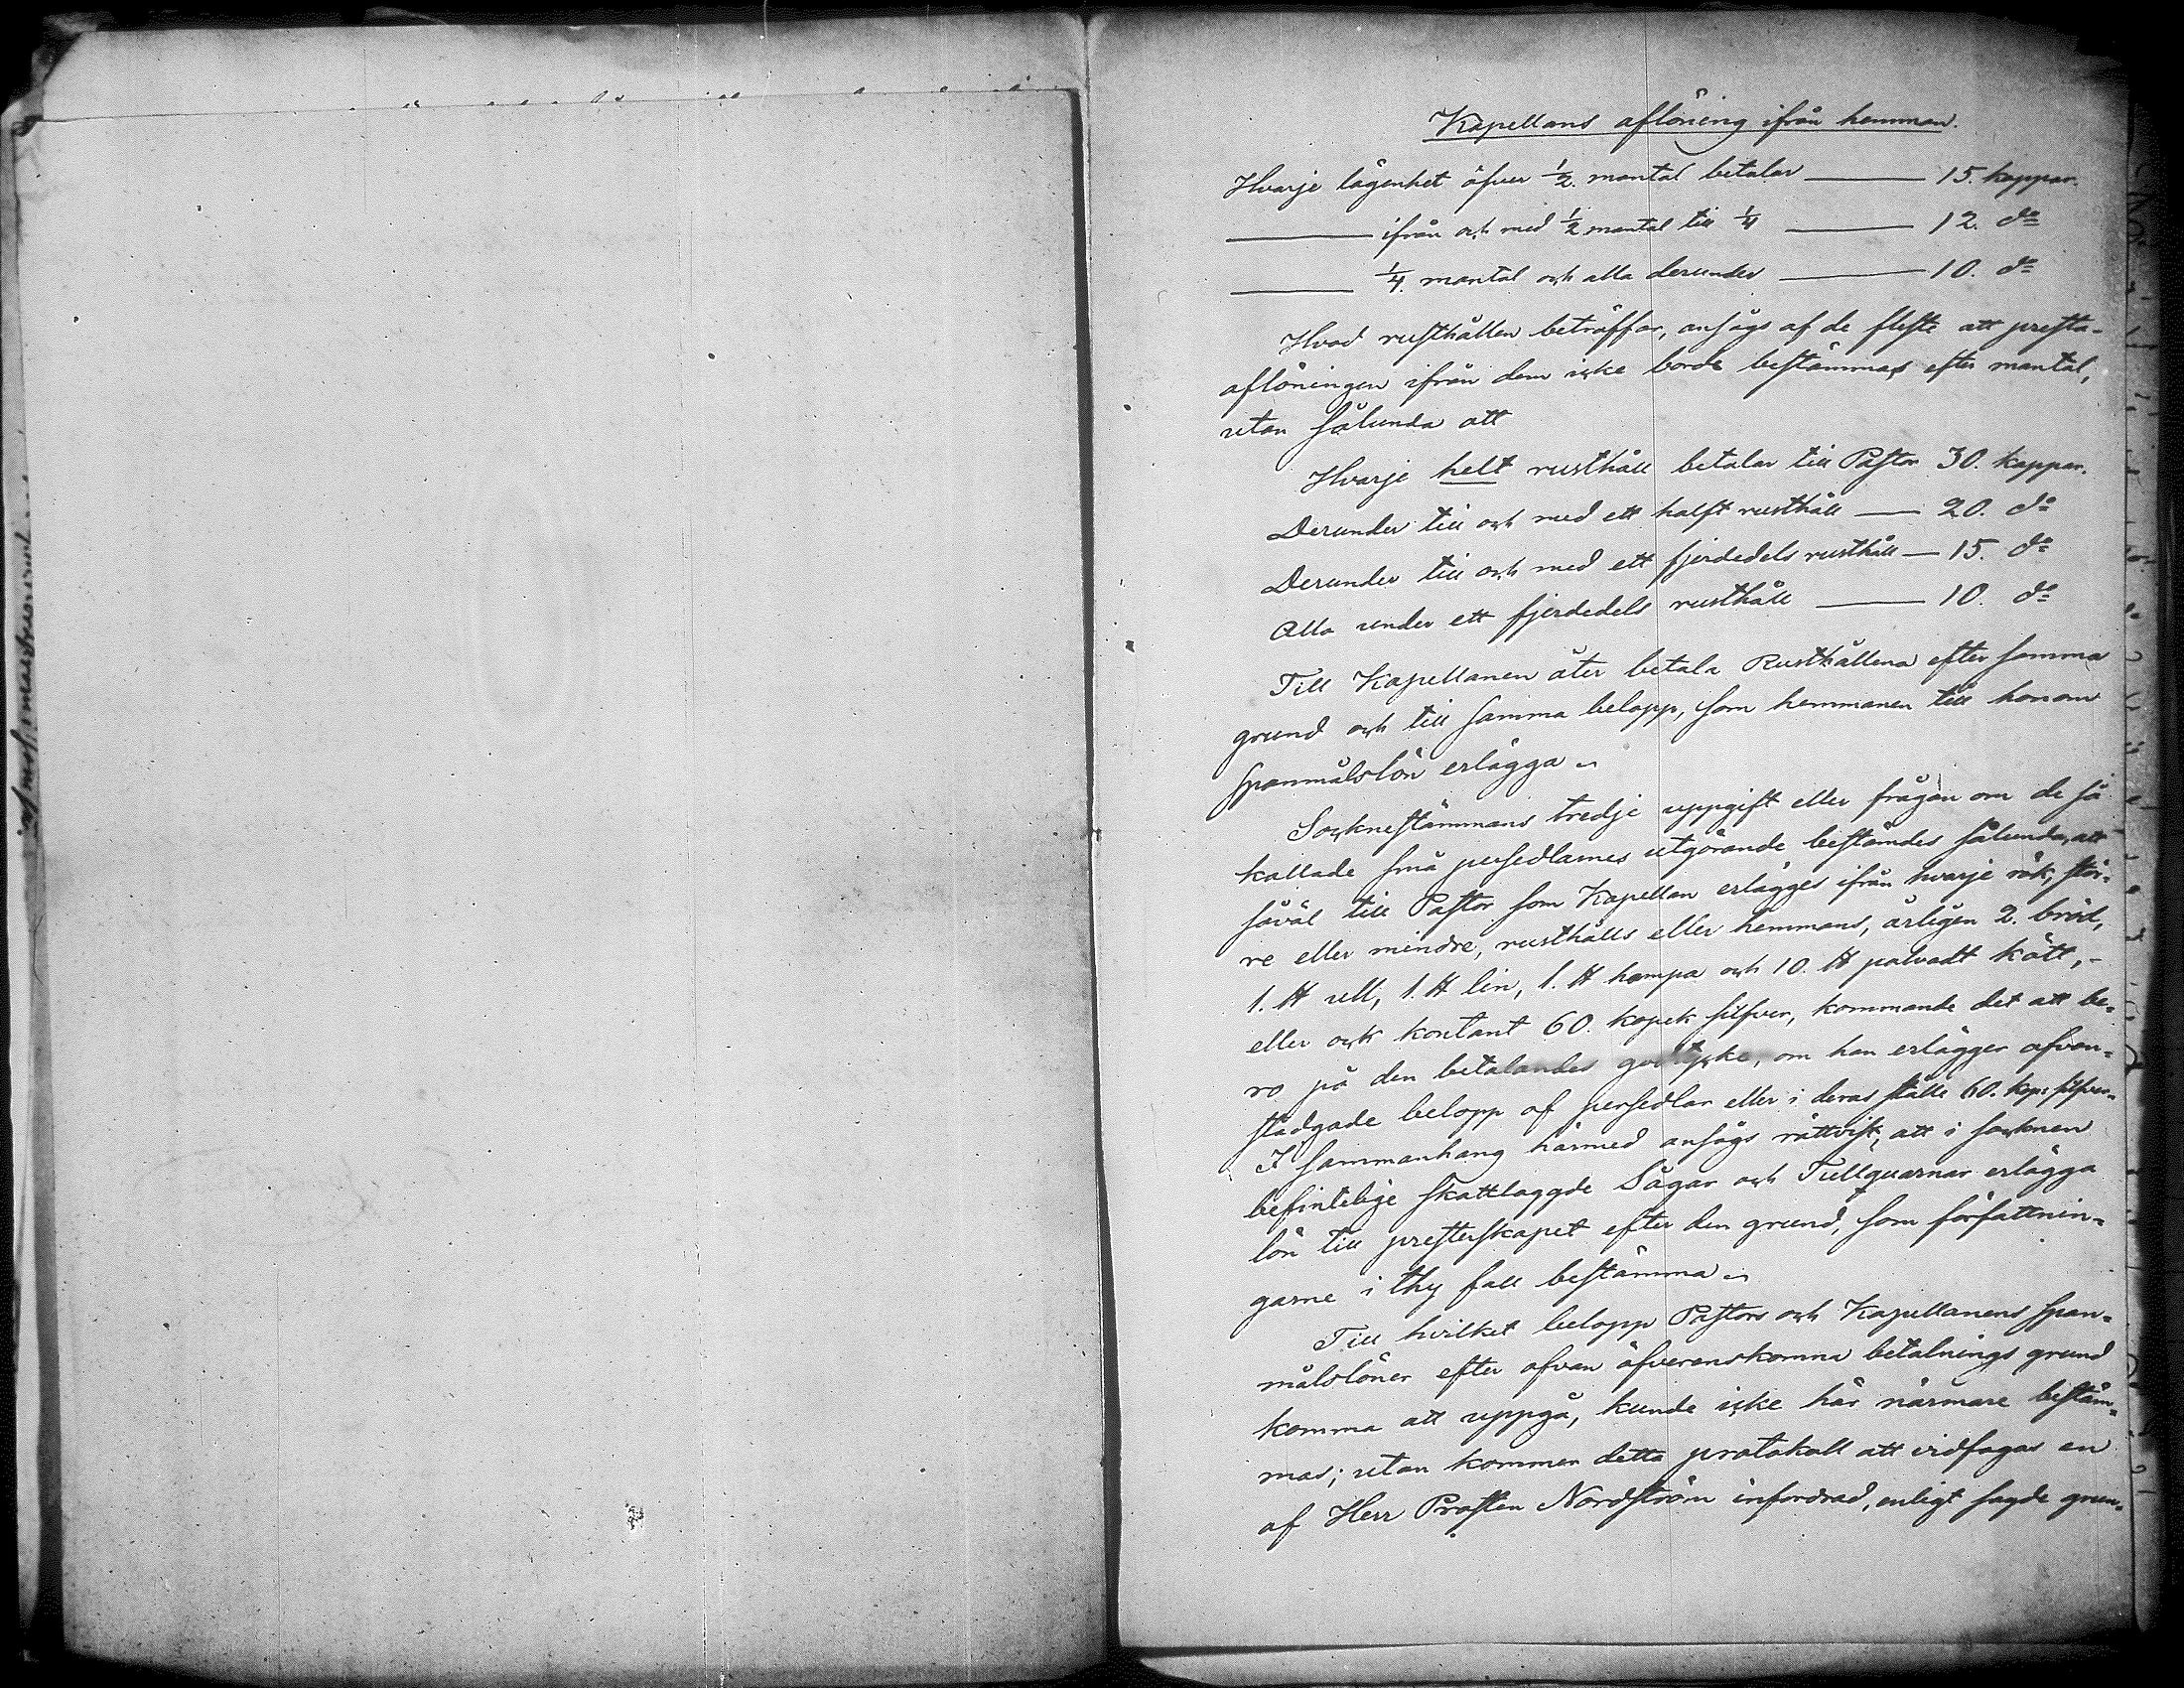 Kapellans aflöning ifrån hemman.
Hvarje lägenhet öfver 1/2. mantal betalar — 15. kappar.
— ifrån och med 1/2 mantal till 1/4 — 12. do
— 1/4. mantal och alla derunder — 10. do
Hvad rusthållen beträffar, ansågs af de fleste att presta-
aflöningen ifrån dem icke borde bestämmas efter mantal,
utan sålunda att
Hvarje helt rusthåll betalar till Pastor 30. kappar.
Derunder till och med ett halft rusthåll — 20. do
Derunder till och med ett fjerdedels rusthåll — 15. do
Alla under ett fjerdedels rusthåll — 10. do
Till Kapellanen åter betala Rusthållena efter samma
grund och till samma belopp, som hemmanen till honom
spanmålslön erlägga
Socknestämmans tredje uppgift eller frågan om de så
kallade små persedlarnes utgörande bestämdes sålunda, att
såväl till Pastor som Kapellan erlägges ifrån hvarje rök, stör-
re eller mindre, rusthålls eller hemmans, årligen 2. bröd,
1. ℔ ull, 1. ℔ lin, 1. ℔ hampa och 10. ℔ palvadt kött,-
eller ock kontant 60. kopek silfver, kommande det att be-
ro på den betalandes godtycke, om han erlägger ofvan-
stadgade belopp af persedlar eller i deras ställe 60. kop: silfver.
I sammanhang härmed ansågs rättvist, att i socknen
befintelige skattlaggde Sågar och Tullquarnar erlägga
lön till presterskapet efter den grund, som författnin-
garne i thy fall bestämma
Till hvilket belopp Pastors och Kapellanens span-
målslöner efter ofvan öfverenskomna betalnings grund
komma att uppgå, kunde icke här närmare bestäm-
mas; utan kommer detta protokoll att vidfogas en
af Herr Prosten Nordström infordrad, enligt sagde grun-